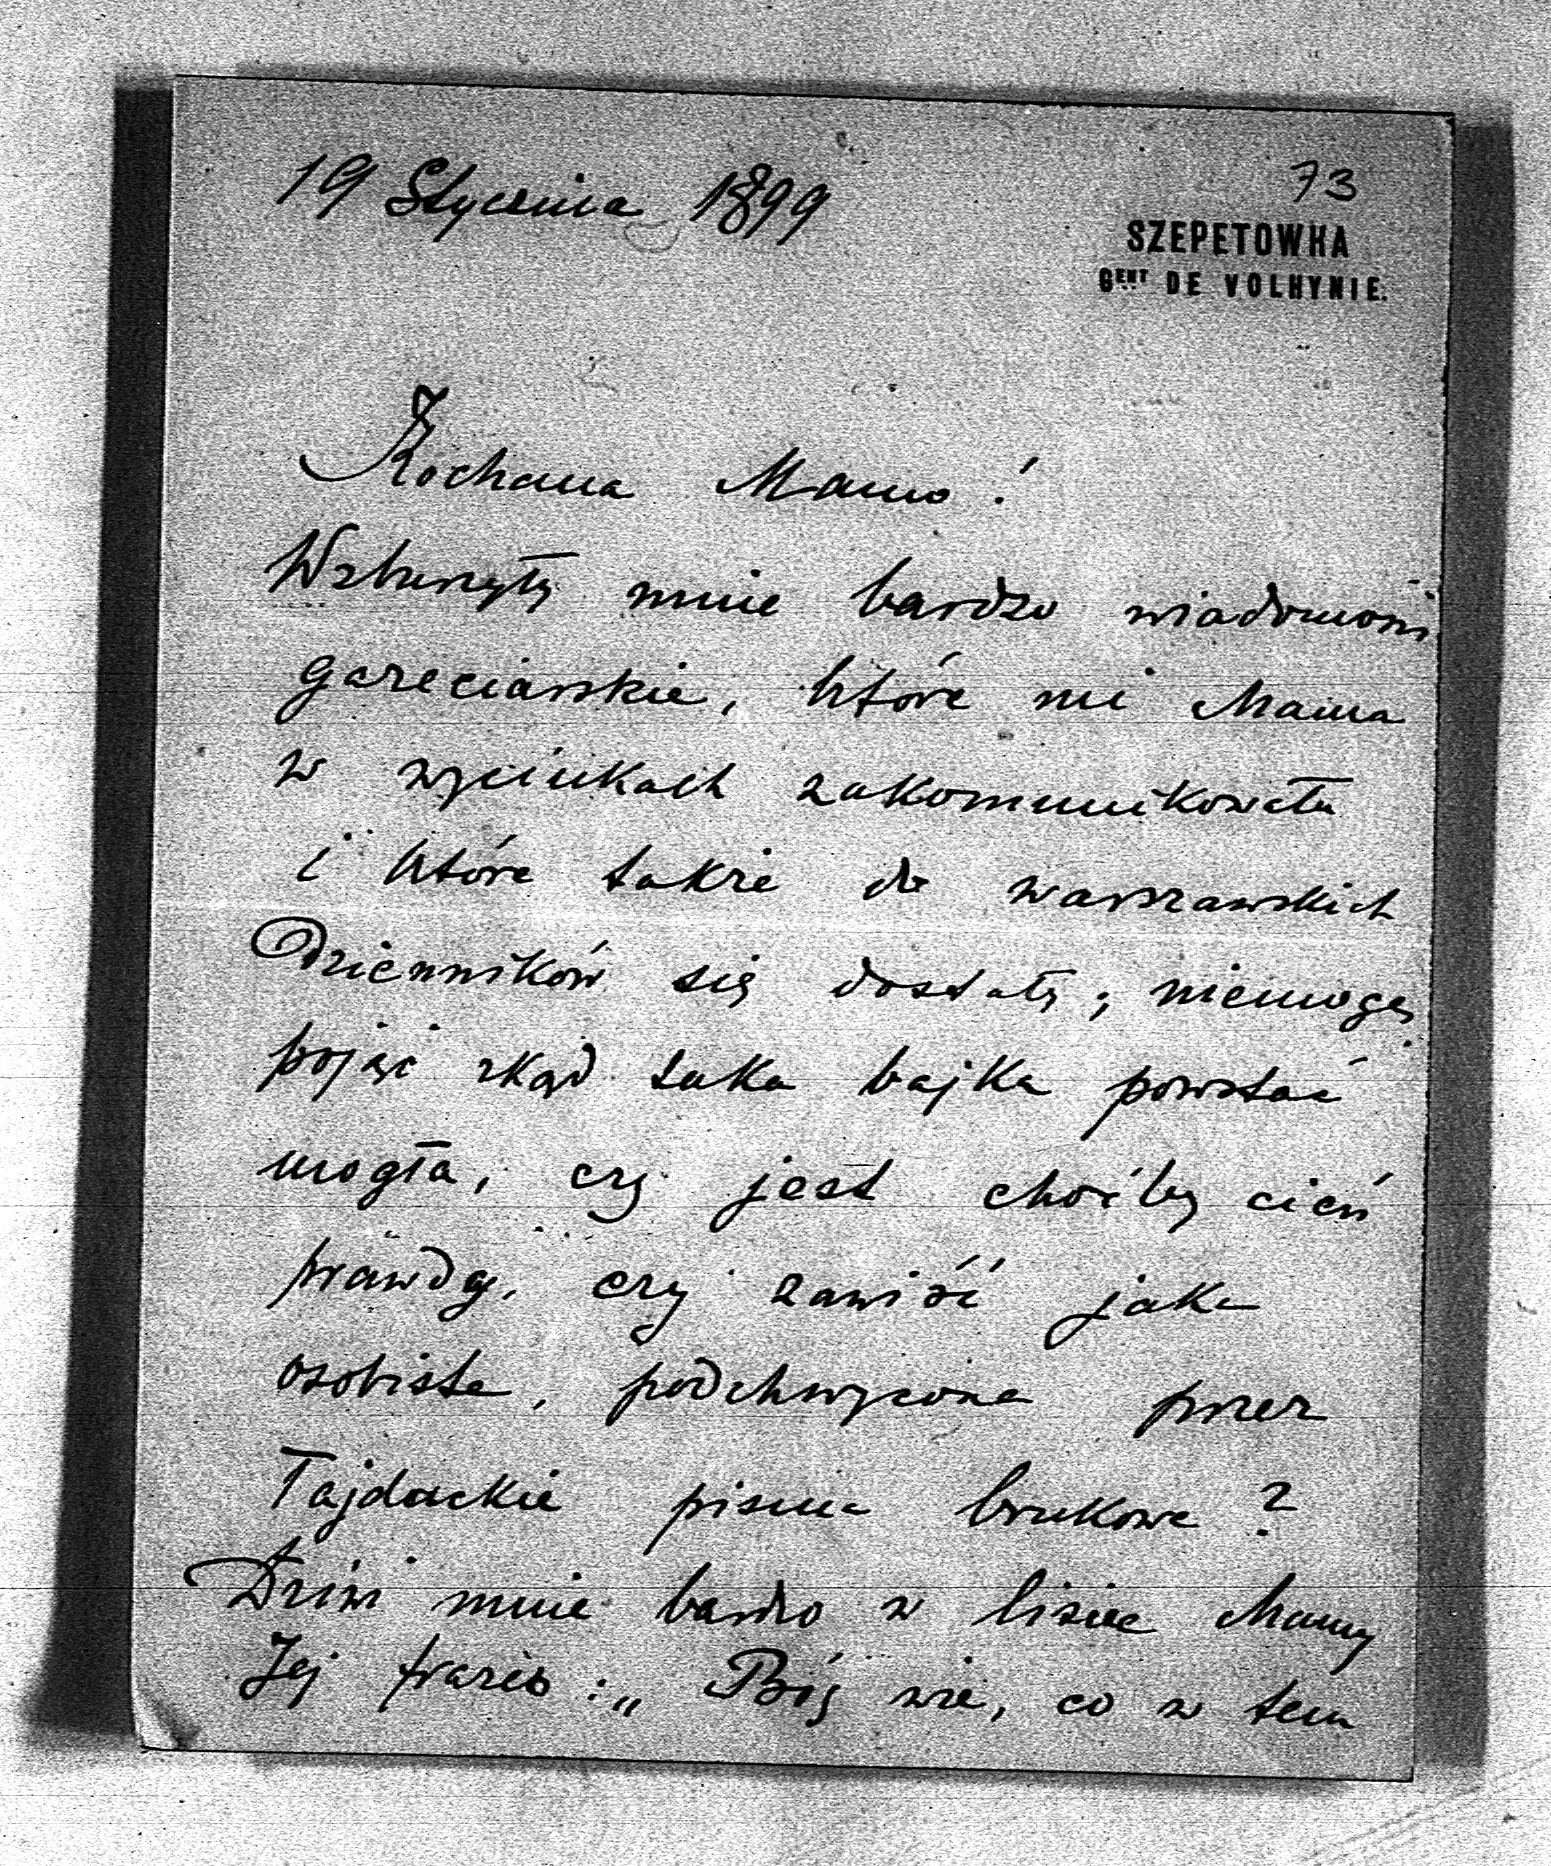 19 Stycznia 1899
73
SZEPETOWKA
GENT DE VOLHYNIE.
Kochana Mamo!
Wzburzyły mnie bardzo wiadomości
gazeciarskie, które mi Mama
w wycinkach zakomunikowała
i które także do warszawskich
Dzienników się dostały; niemogę
pojąć zkąd taka bajka powstać
mogła, czy jest choćby cień
prawdy, czy zawiść jaka
osobista, podchwycona przez
Łajdackie pisma brukowe?
Dziwi mnie bardzo w liście Mamy
Jej frazes: „Bóg wie, co w tem